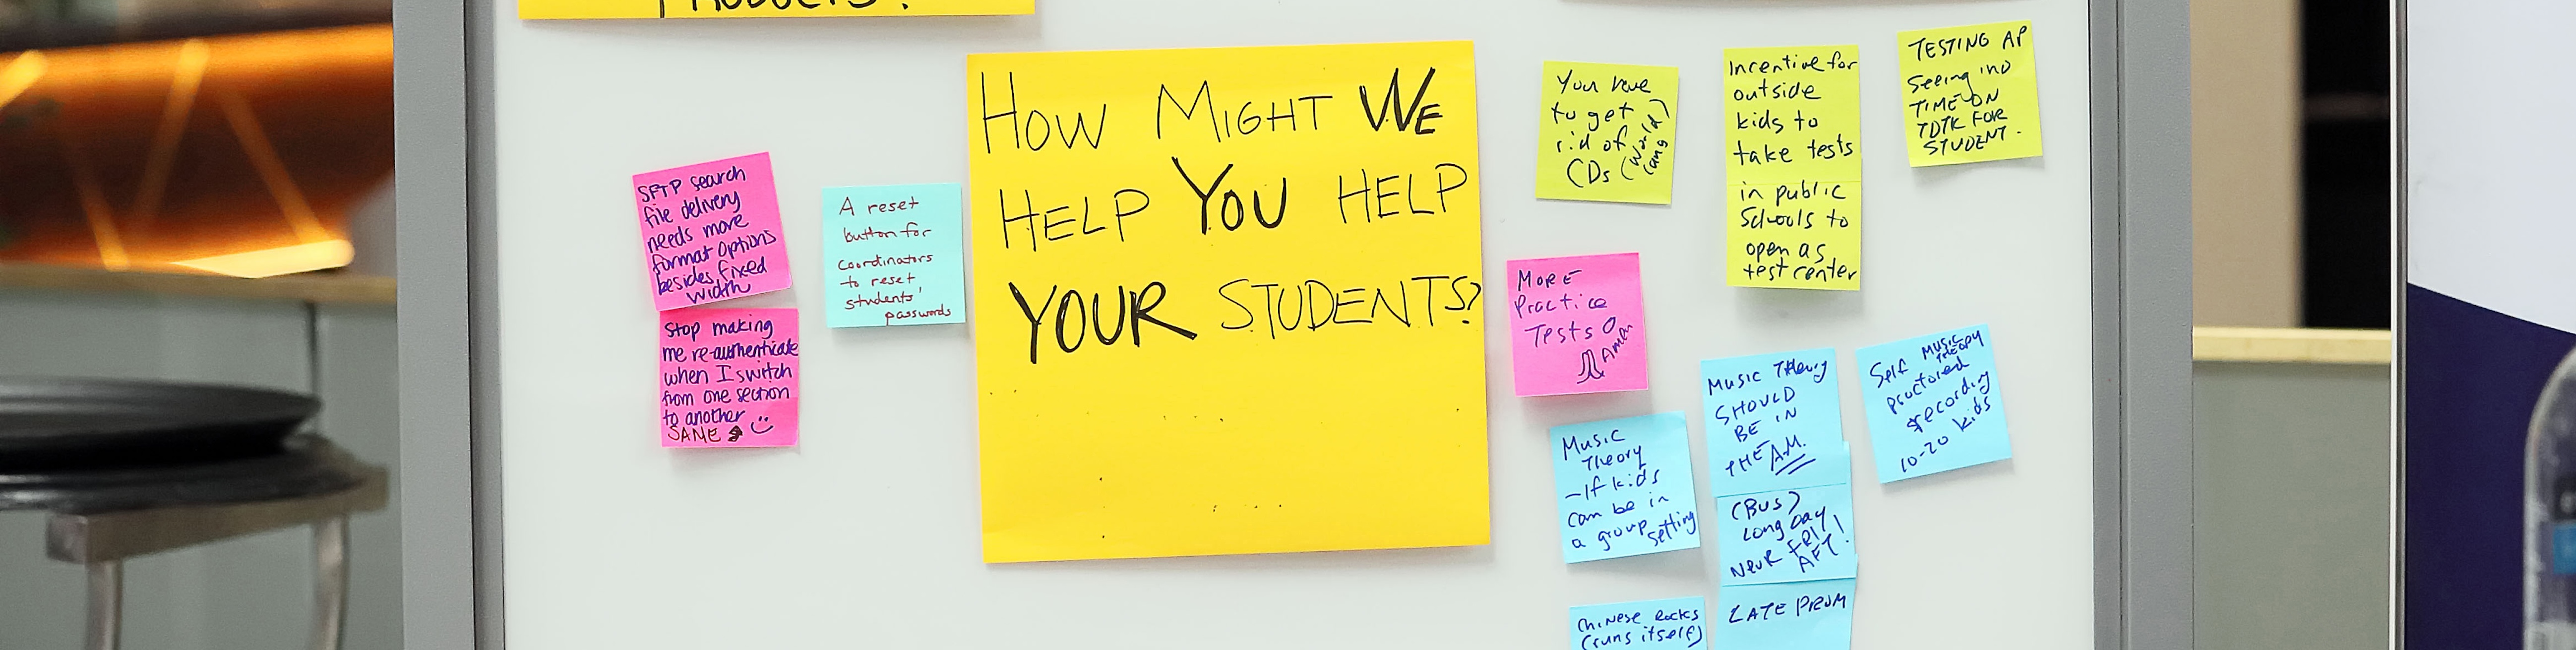 PRODUCTS?
HOW MIGHT WE
HELP YOU HELP
YOUR STUDENTS?
SFTP search
file delivery
needs more
format options
besides fixed
width
Stop making
me re-authenticate
when I switch
from one section
to another
SAME
A reset
button for
coordinators
to reset
students'
passwords
You have
to get
rid of
CDs (World
Lang)
Incentive for
outside
kids to
take tests
in public
Schools to
open as
test center
TESTING AP
Seeing no
TIME ON
TDTK FOR
STUDENT.
MORE
Practice
Tests
Amen
Music
Theory
-If kids
can be in
a group setting
MUSIC Theory
SHOULD
BE IN
THE A.M.
(BUS)
Long Day
NEVR FRI!
AFT!
LATE PROM
Self MUSIC
THEORY
proctored
recording
10-20 kids
Chinese Rocks
(runs itself)